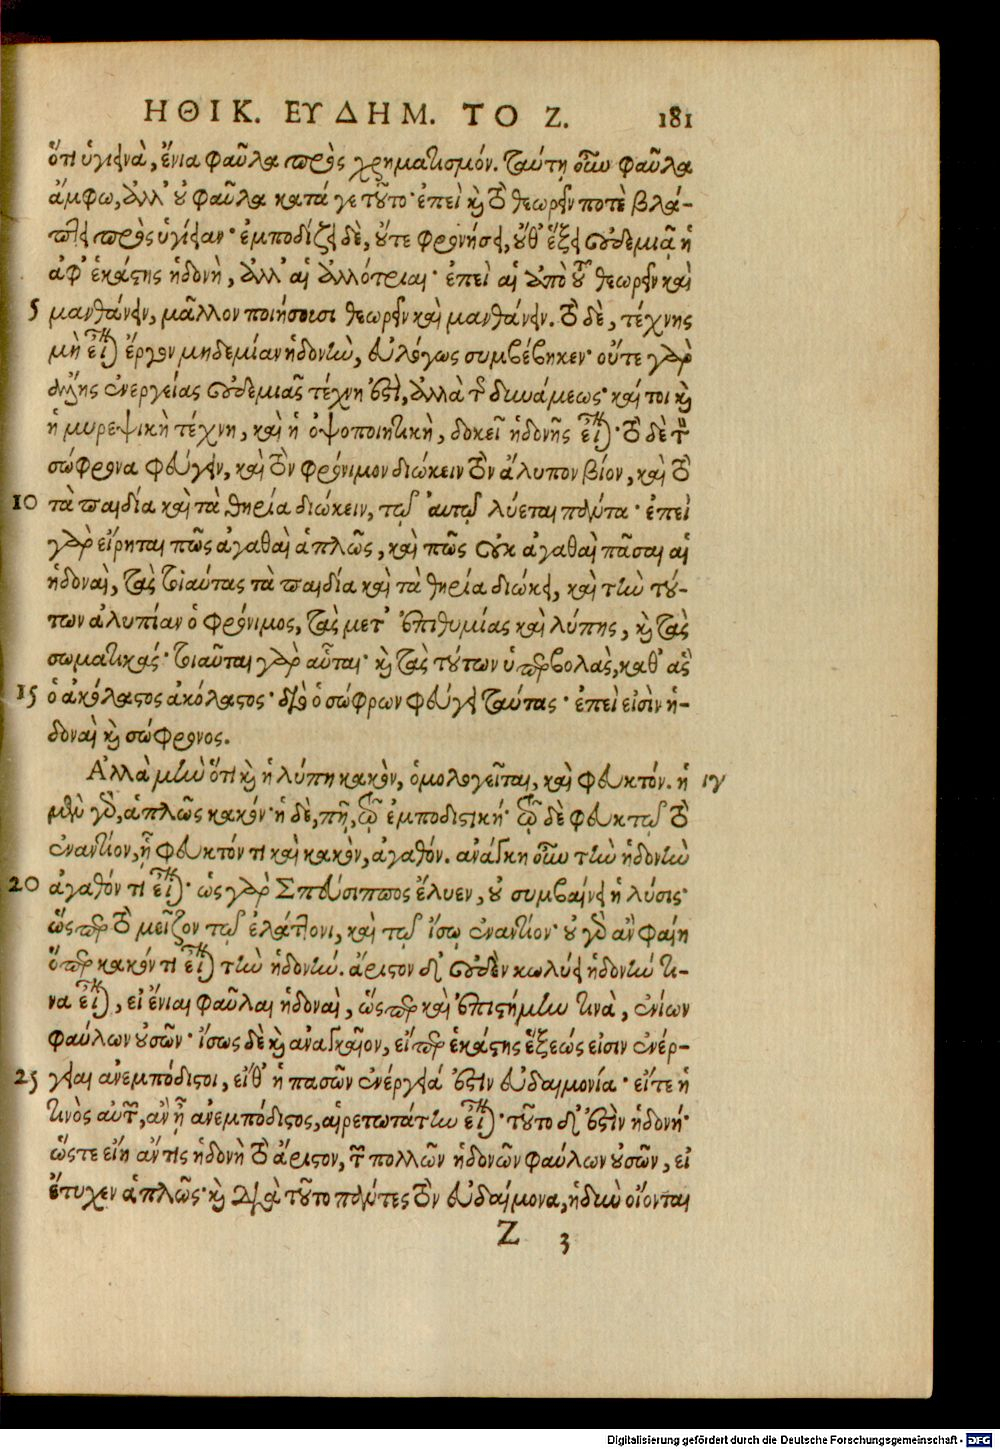 ΗΘΙΚ. ΕΥΔΗΜ. ΤΟ Ζ. 181
ὅτι ὑγιεινὰ, ἔνια φαῦλα πρὸς χρηματισμόν. ταύτῃ οὖν φαῦλα
ἄμφω, ἀλλ' οὐ φαῦλα κατά γε τοῦτο· ἐπεὶ καὶ τὸ θεωρεῖν ποτὲ βλά-
πτει πρὸς ὑγίειαν· ἐμποδίζει δὲ, οὔτε φρονήσει, οὔθ' ἕξει οὐδεμιᾷ ἡ
ἀφ' ἑκάστης ἡδονὴ, ἀλλ' αἱ ἀλλότριαι· ἐπεὶ αἱ ἀπὸ τοῦ θεωρεῖν καὶ
5 μανθάνειν, μᾶλλον ποιήσουσι θεωρεῖν καὶ μανθάνειν. τὸ δὲ, τέχνης
μὴ εἶναι ἔργον μηδεμίαν ἡδονὴν, εὐλόγως συμβέβηκεν· οὔτε γὰρ
ἄλλης ἐνεργείας οὐδεμιᾶς τέχνη ἐστὶ, ἀλλὰ τῆς δυνάμεως· καί τοι καὶ
ἡ μυρεψικὴ τέχνη, καὶ ἡ ὀψοποιητικὴ, δοκεῖ ἡδονῆς εἶναι· τὸ δὲ τὸν
σώφρονα φεύγειν, καὶ τὸν φρόνιμον διώκειν τὸν ἄλυπον βίον, καὶ τὸ
10 τὰ παιδία καὶ τὰ θηρία διώκειν, τῷ αὐτῷ λύεται πάντα· ἐπεὶ
γὰρ εἴρηται πῶς ἀγαθαὶ ἁπλῶς, καὶ πῶς οὐκ ἀγαθαὶ πᾶσαι αἱ
ἡδοναὶ, τὰς τοιαύτας τὰ παιδία καὶ τὰ θηρία διώκει, καὶ τὴν τού-
των ἀλυπίαν ὁ φρόνιμος, τὰς μετ' ἐπιθυμίας καὶ λύπης, καὶ τὰς
σωματικάς· τοιαῦται γὰρ αὗται· καὶ τὰς τούτων ὑπερβολὰς, καθ' ἃς
15 ὁ ἀκόλαστος ἀκόλαστος· διὸ ὁ σώφρων φεύγει ταύτας· ἐπεὶ εἰσὶν ἡ-
δοναὶ καὶ σώφρονος.
Ἀλλὰ μὴν ὅτι καὶ ἡ λύπη κακὸν, ὁμολογεῖται, καὶ φευκτόν. ἡ ιγ
μὲν γὰρ, ἁπλῶς κακόν· ἡ δὲ, πῆ, τῷ ἐμποδιστική· τῷ δὲ φευκτῷ τὸ
ἐναντίον, ᾗ φευκτόν τι καὶ κακὸν, ἀγαθόν. ἀνάγκη οὖν τὴν ἡδονὴν
20 ἀγαθόν τι εἶναι· ὡς γὰρ Σπεύσιππος ἔλυεν, οὐ συμβαίνει ἡ λύσις·
ὥσπερ τὸ μεῖζον τῷ ἐλάττονι, καὶ τῷ ἴσῳ ἐναντίον· οὐ γὰρ ἂν φαίη
ὅπερ κακόν τι εἶναι τὴν ἡδονήν. ἄριστον δ' οὐδὲν κωλύει ἡδονήν τι-
να εἶναι, εἰ ἔνιαι φαῦλαι ἡδοναὶ, ὥσπερ καὶ ἐπιστήμην τινὰ, ἐνίων
φαύλων οὐσῶν· ἴσως δὲ καὶ ἀναγκαῖον, εἴπερ ἑκάστης ἕξεώς εἰσιν ἐνέρ-
25 γειαι ἀνεμπόδιστοι, εἴθ' ἡ πασῶν ἐνέργειά ἐστιν εὐδαιμονία· εἴτε ἡ
τινὸς αὐτῶν, ἂν ᾖ ἀνεμπόδιστος, αἱρετωτάτην εἶναι· τοῦτο δ' ἐστὶν ἡδονή·
ὥστε εἴη ἄν τις ἡδονὴ τὸ ἄριστον, τῶν πολλῶν ἡδονῶν φαύλων οὐσῶν, εἰ
ἔτυχεν ἁπλῶς· καὶ διὰ τοῦτο πάντες τὸν εὐδαίμονα, ἡδὺν οἴονται
Z 3
Digitalisierung gefördert durch die Deutsche Forschungsgemeinschaft - DFG